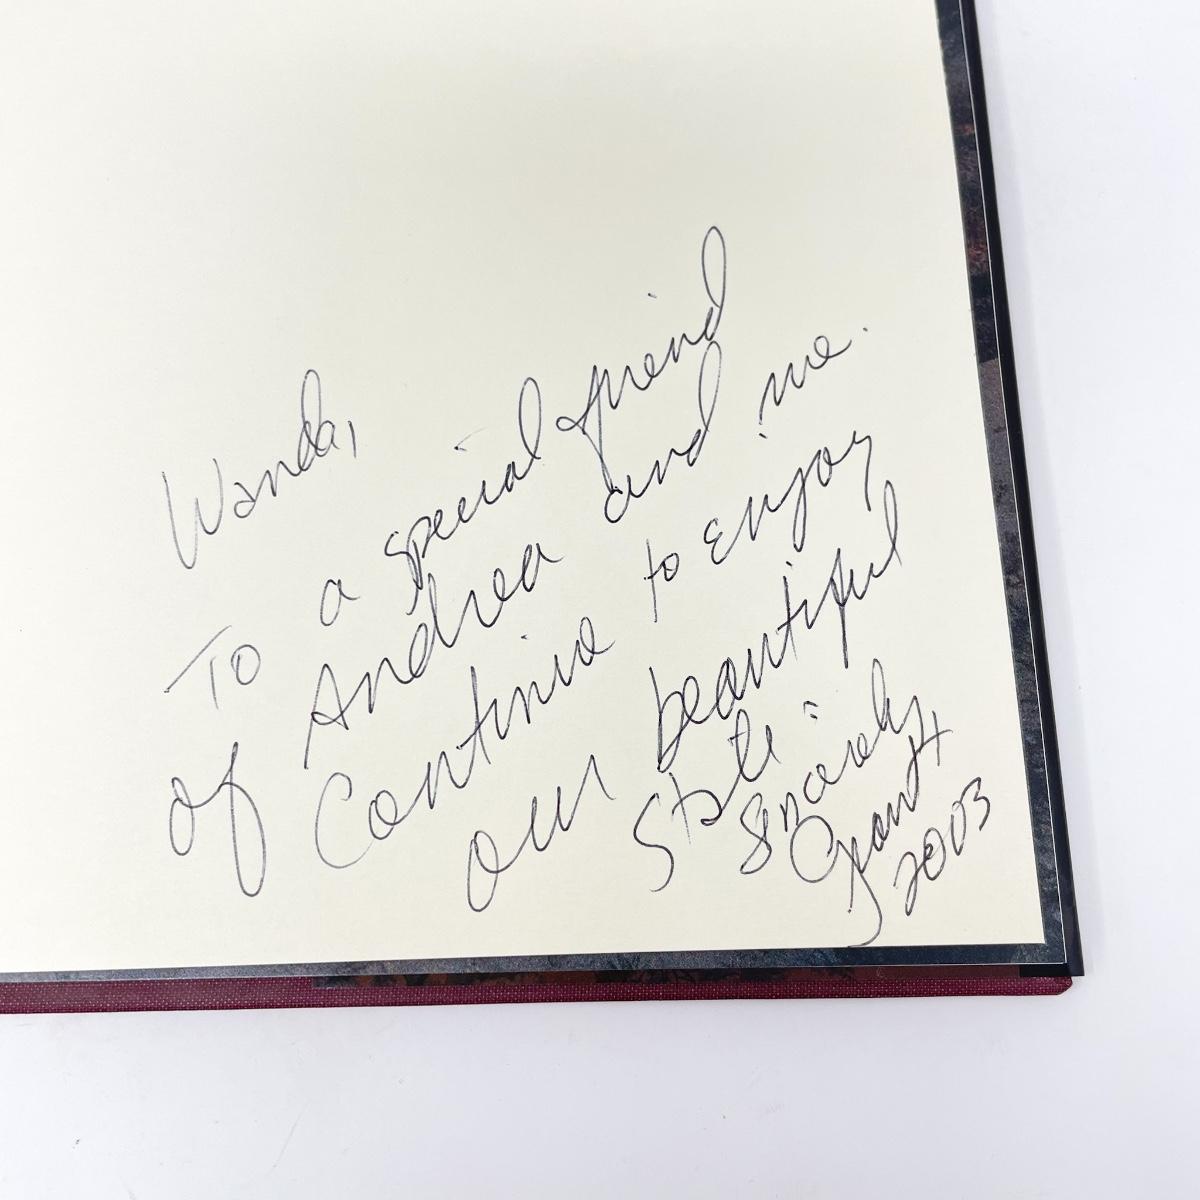 Wanda,
To a special friend
of Andrea and me.
Continue to enjoy
our beautiful
state
Sincerely
Grant
2003